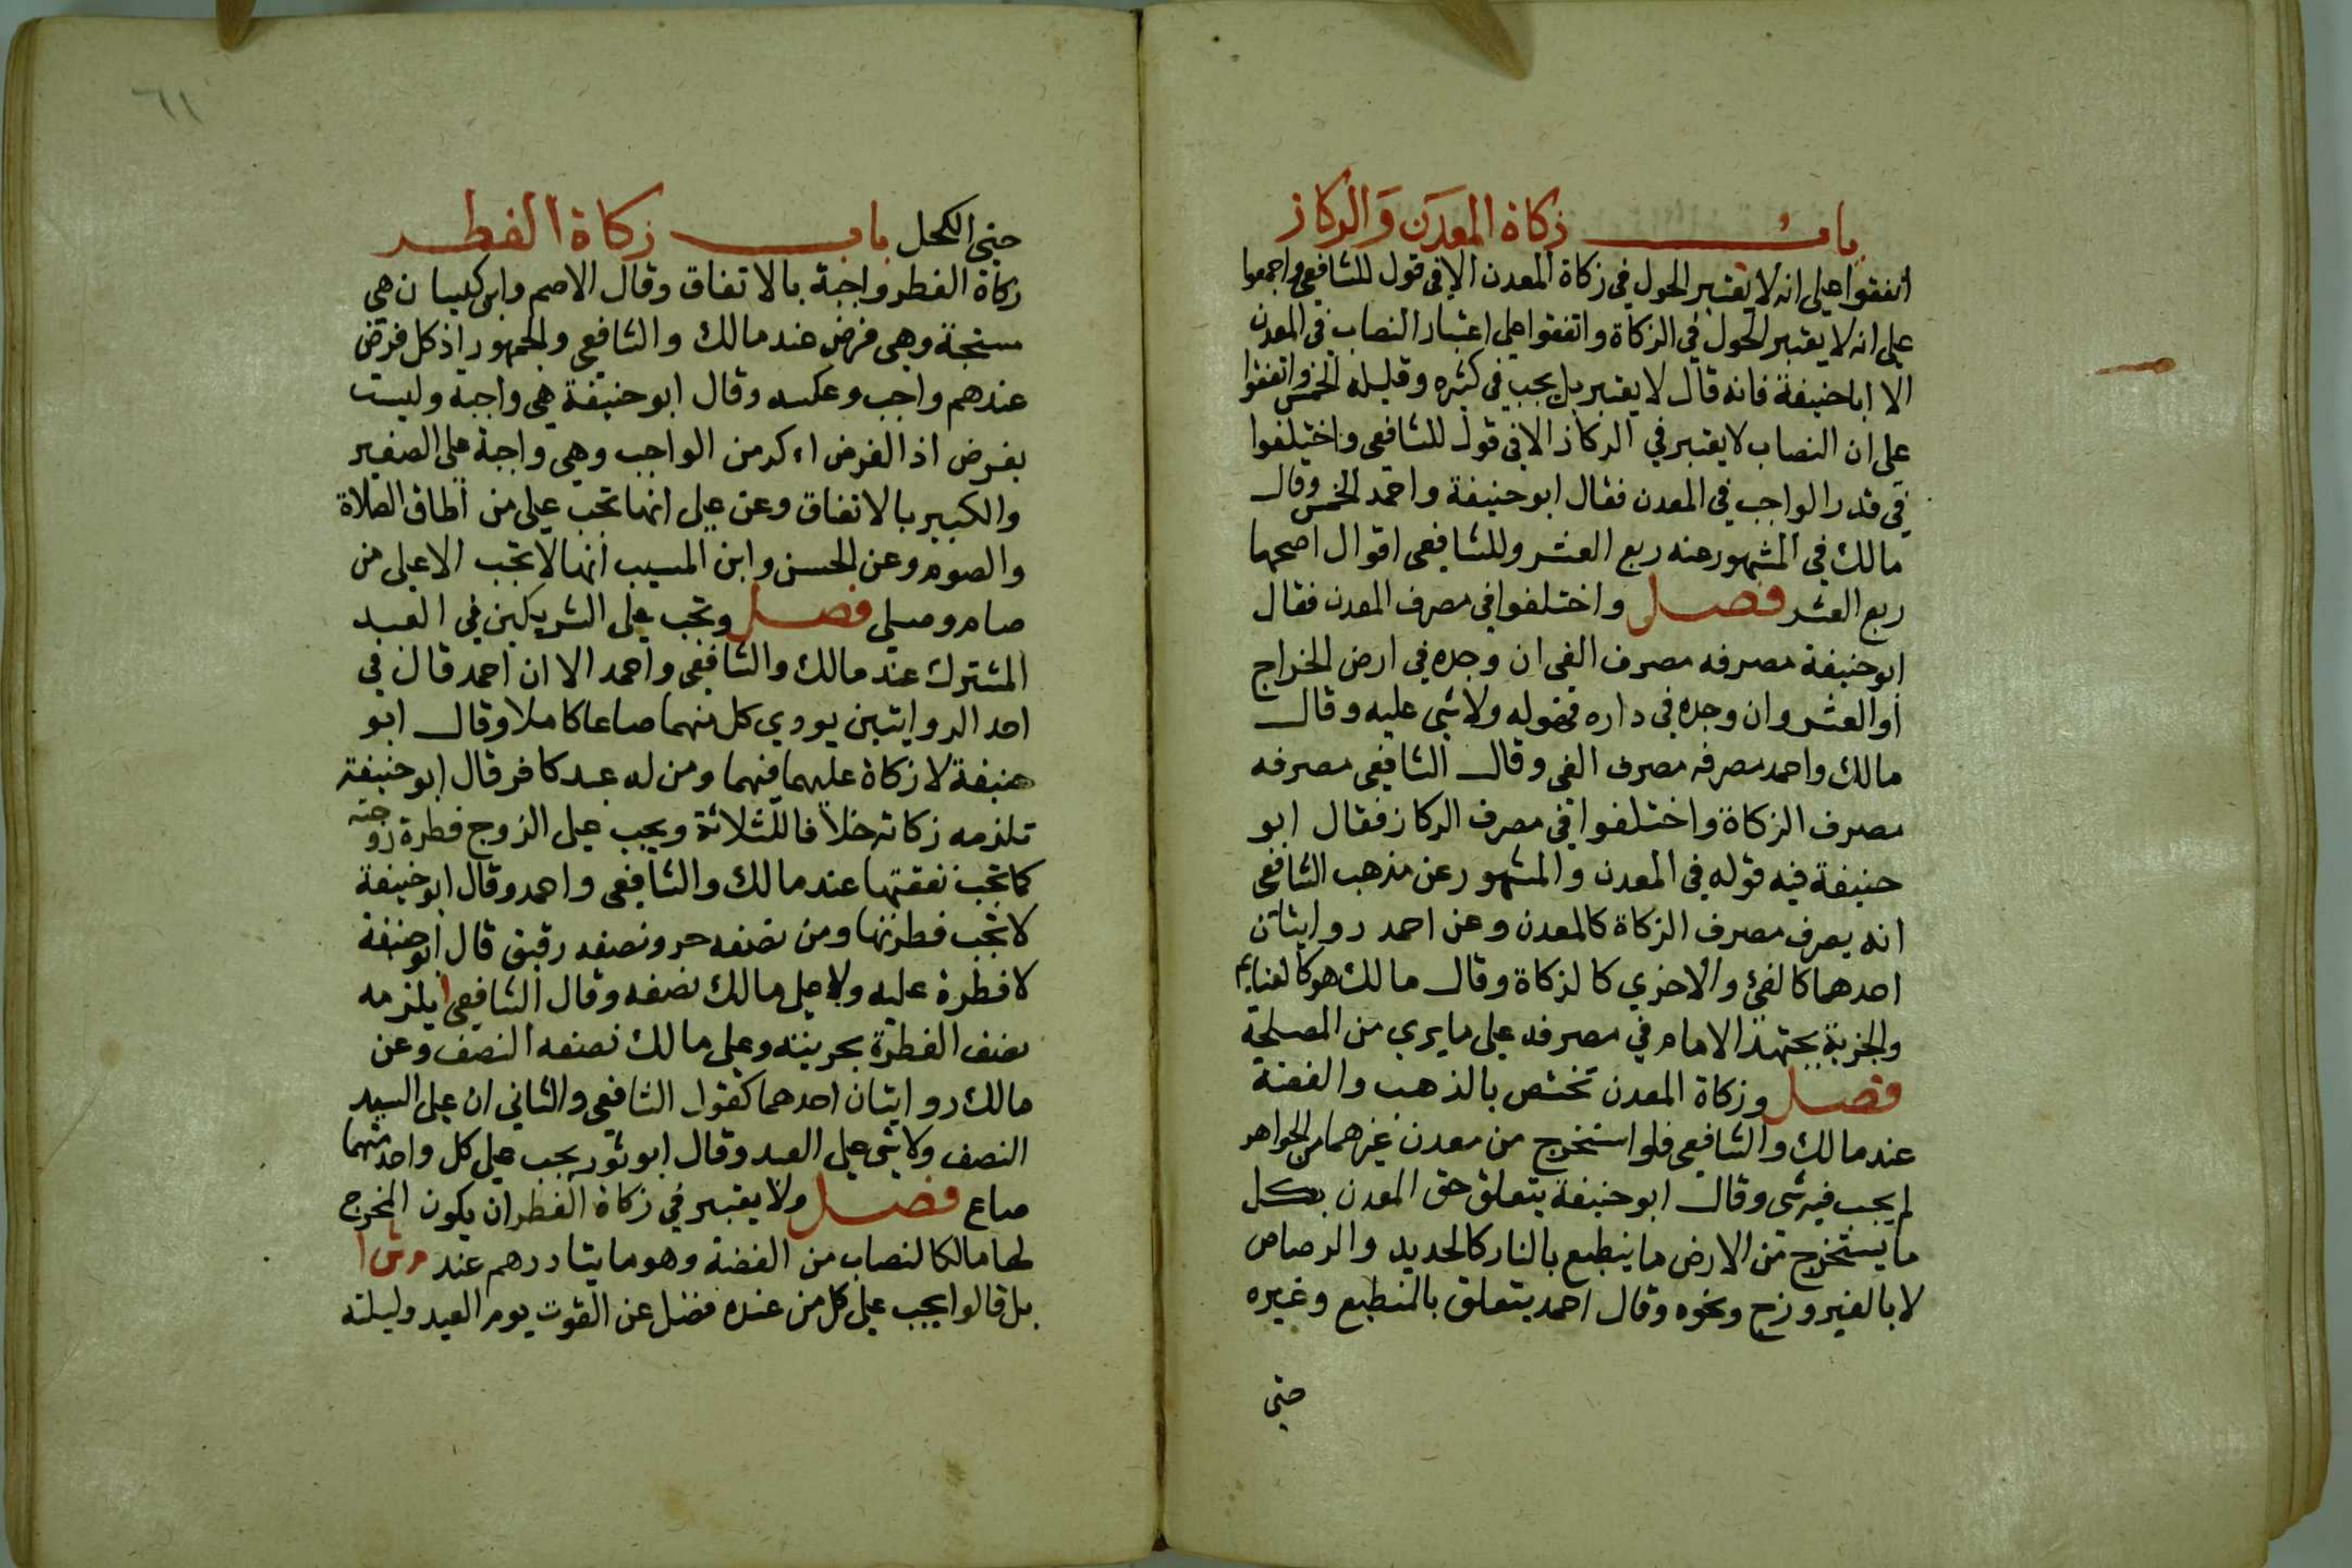 باب زكاة المعدن والركاز
اتفقوا على انه لا يعتبر الحول في زكاة المعدن الا في قول للشافعي واجمعوا
على انه لا يعتبر الحول في الزكاة واتفقوا على اعتبار النصاب في المعدن
الا اباحنيفة فانه قال لا يعتبر بل يجب في كثيره وقليله الخمس واتفقوا
على ان النصاب لا يعتبر في الركاز الا في قول للشافعي واختلفوا
في قدر الواجب في المعدن فقال ابوحنيفة واحمد الخمس وقال
مالك في المشهور عنه ربع العشر وللشافعي اقوال اصحها
ربع العشر فصل واختلفوا في مصرف المعدن فقال
ابوحنيفة مصرفه مصرف الفي ان وجده في ارض الخراج
أو العشر وان وجده في داره فهوله ولا شي عليه وقال
مالك واحمد مصرفه مصرف الفي وقال الشافعي مصرفه
مصرف الزكاة واختلفوا في مصرف الركاز فقال ابو
حنيفة فيه قوله في المعدن والمشهور عن مذهب الشافعي
انه يصرف مصرف الزكاة كالمعدن وعن احمد روايتان
احدهما كالفئ والاخري كالزكاة وقال مالك هو كالغنايم
والجزية يجتهد الامام في مصرفه على ما يري من المصلحة
فصل وزكاة المعدن تختص بالذهب والفضة
عند مالك والشافعي فلو استخرج من معدن غيرهما من الجواهر
لم يجب فيه شي وقال ابوحنيفة يتعلق حق المعدن بكل
ما يستخرج من الارض ما ينطبع بالنار كالحديد والرصاص
لا بالفيروزج ونحوه وقال احمد يتعلق بالمنطبع وغيره
حتى
٦١
حتى الكحل باب زكاة الفطر
زكاة الفطر واجبة بالاتفاق وقال الاصم وابن كيسان هي
مستحبة وهي فرض عند مالك والشافعي والجمهور اذ كل فرض
عندهم واجب وعكسه وقال ابوحنيفة هي واجبة وليست
بفرض اذ الفرض اءكد من الواجب وهي واجبة على الصغير
والكبير بالاتفاق وعن على انها تجب على من اطاق الصلاة
والصوم وعن الحسن وابن المسيب انها لا تجب الا على من
صام وصلي فصل وتجب على الشريكين في العبد
المشترك عند مالك والشافعي واحمد الا ان احمد قال في
احد الروايتين يودي كل منهما صاعا كاملا وقال ابو
حنيفة لا زكاة عليهما فيهما ومن له عبد كافر قال ابوحنيفة
تلزمه زكاته خلافا للثلاثة ويجب على الزوج فطرة زوجته
كما تجب نفقتها عند مالك والشافعي واحمد وقال ابوحنيفة
لا تجب فطرتها ومن نصفه حر ونصفه رقيق قال ابوحنيفة
لا فطرة عليه ولا على مالك نصفه وقال الشافعي يلزمه
نصف الفطرة بحريته وعلى مالك نصفه النصف وعن
مالك روايتان احدهما كقول الشافعي والثاني ان على السيد
النصف ولا شي على العبد وقال ابو ثور يجب على كل واحد منهما
صاع فصل ولا يعتبر في زكاة الفطر ان يكون المخرج
لها مالكا لنصاب من الفضة وهو مايتا درهم عند م ش ا
بل قالوا يجب على كل من عنده فضل عن القوت يوم العيد وليلته